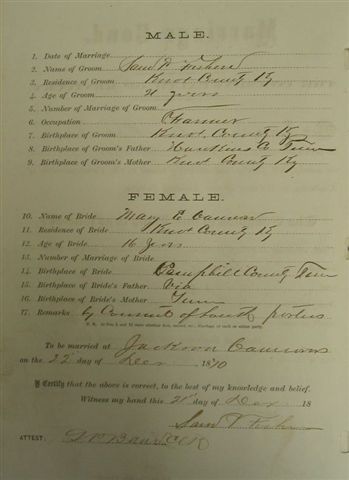 MALE.
1. Date of Marriage
2. Name of Groom Saml
3. Residence of Groom Knox County Ky
4. Age of Groom 21 years
5. Number of Marriage of Groom
6. Occupation Farmer
7. Birthplace of Groom Knox County Ky
8. Birthplace of Groom's Father Hawkins Co Tenn
9. Birthplace of Groom's Mother Knox County Ky
FEMALE.
10. Name of Bride Mary E
11. Residence of Bride Knox County Ky
12. Age of Bride 16 Years
13. Number of Marriage of Bride
14. Birthplace of Bride Campbell County Tenn
15. Birthplace of Bride's Father Va
16. Birthplace of Bride's Mother Tenn
17. Remarks by Consent of both parties
To be married at Jackson
on the 22 day of Dec 1870
I Certify that the above is correct, to the best of my knowledge and belief.
Witness my hand this 21 day of Dec 18
ATTEST: